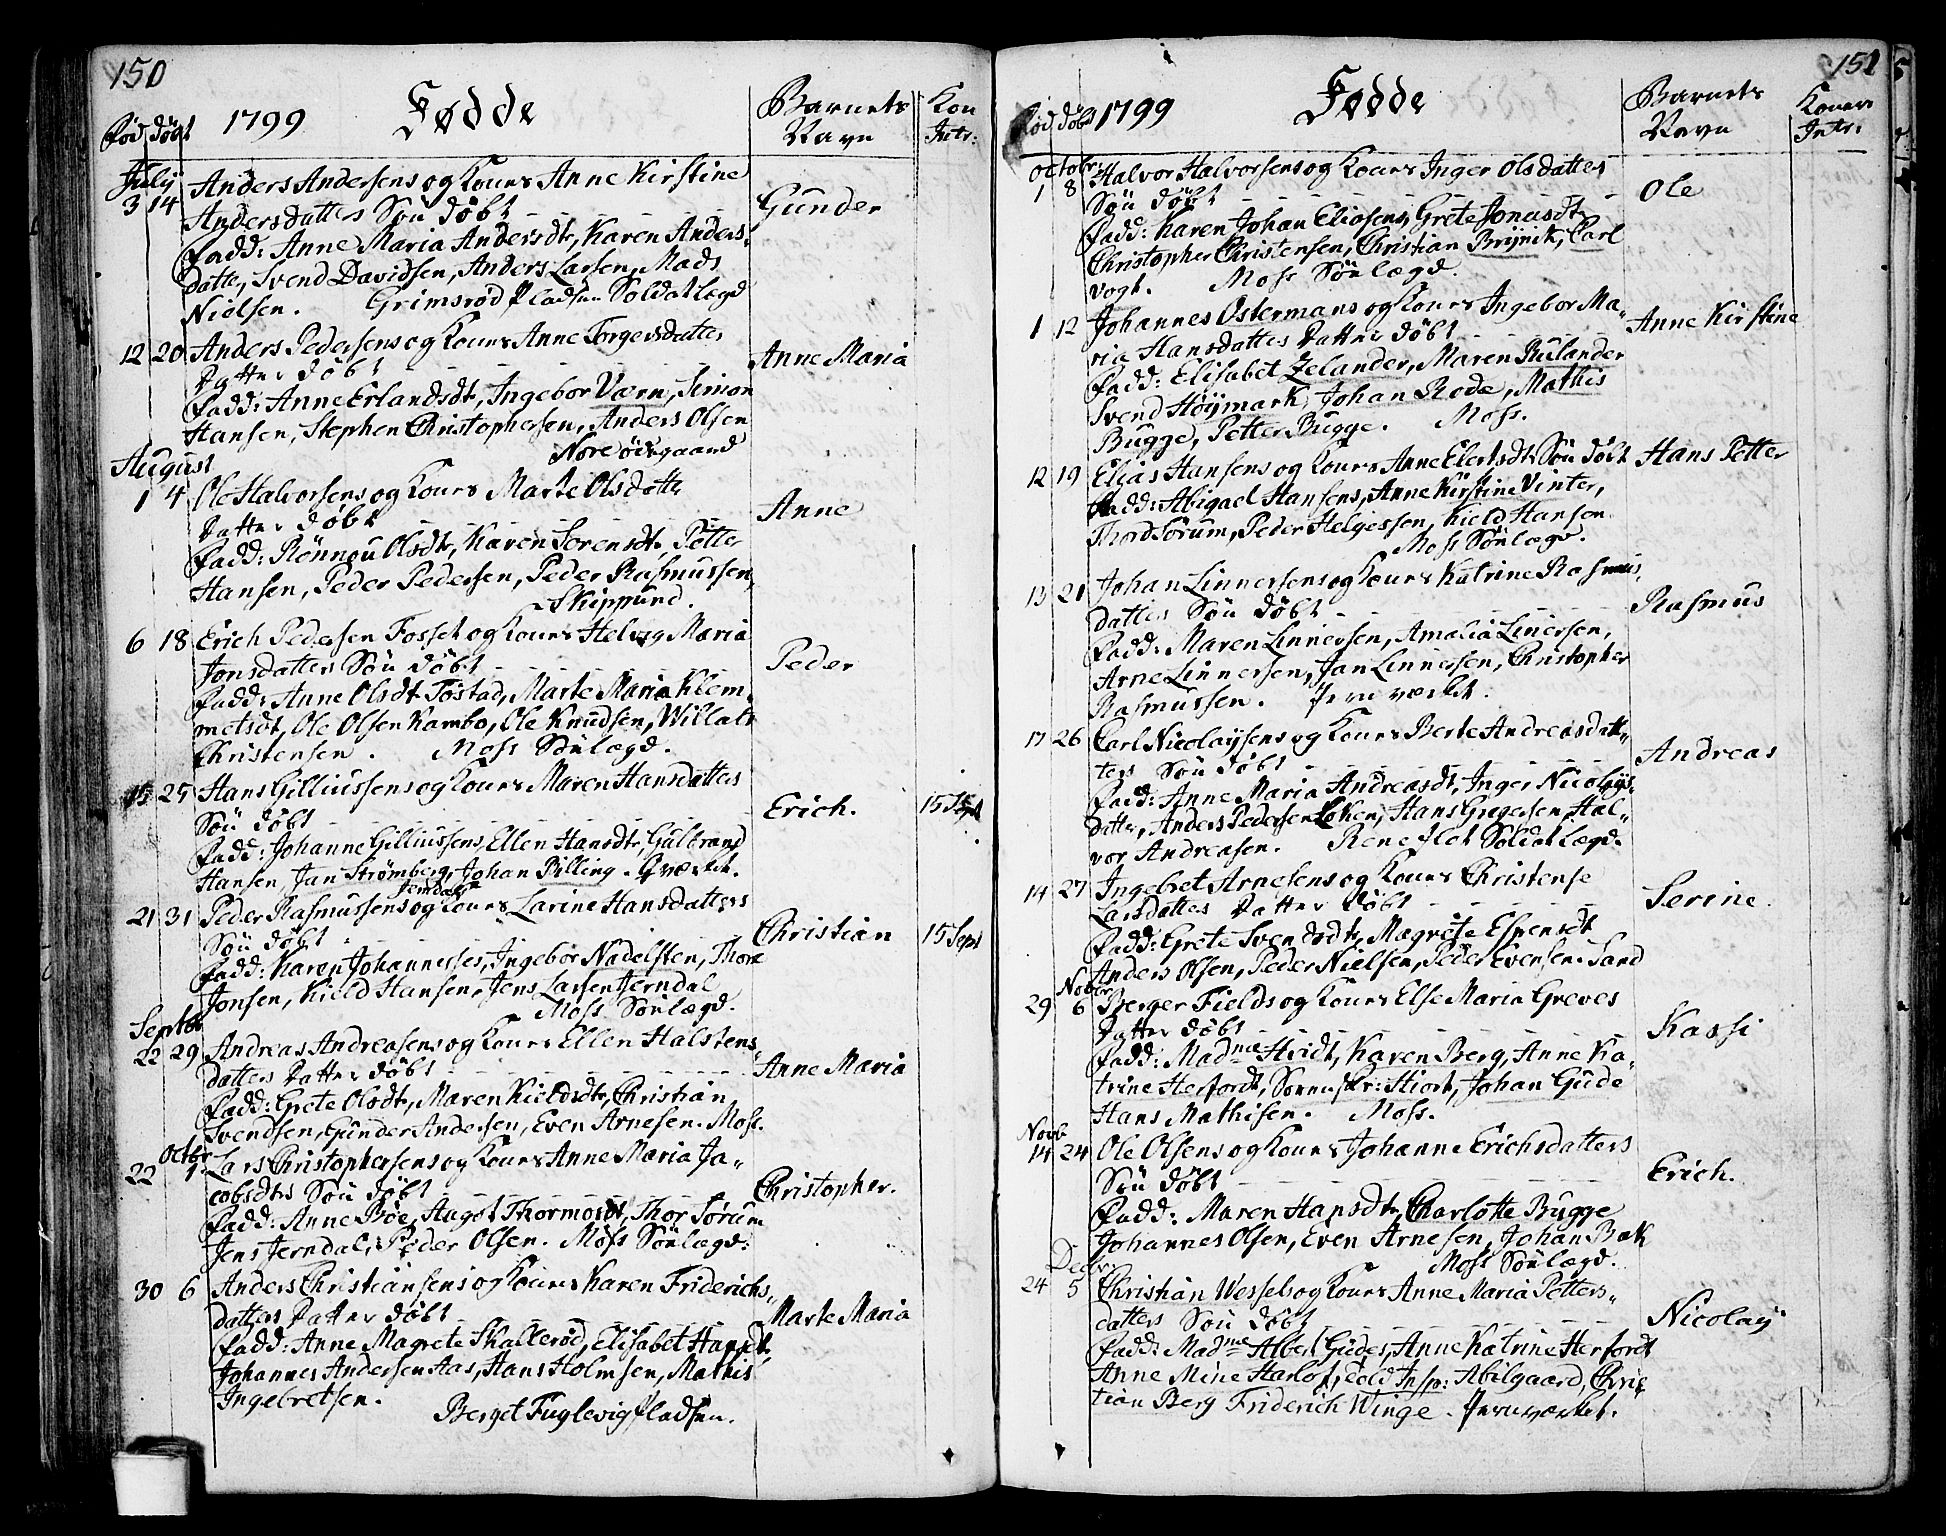 150
1799 Fødde
Barnets Navn
Kon Intr:
fød døbt
July
3 14 Anders Andersens og Kones Anne Kirstine
Andersdatters Søn døbt
Gunder
Fadd: Anne Maria Andersdt, Karen Anders-
datter, Svend Davidsen, Anders Larsen, Mads
Nielsen. Grimsrød Pladsen Soldatlægd
12 20 Anders Pedersens og Kones Anne Torgersdatter
Datter døbt
Anne Maria
Fadd: Anne Erlandsdt, Ingebor Værn, Simon
Hansen, Stephen Christophersen, Anders Olsen
Nore ødegaard
August
1 4 Ole Halvorsens og Kones Marte Olsdatter
Datter døbt
Anne
Fadd: Rønnou Olsdt, Karen Sorensdt Petter
Hansen, Peder Pedersen, Peder Rasmussen,
Skippund.
6 18 Erich Pedersen Fosset og Kones Helvig Maria
Jonsdatters Søn døbt
Peder
Fadd: Anne Olsdt Tostad, Marte Maria Klem-
metsdt, Ole Olsen Kambo, Ole Knudsen, Willats
Christensen. Moss Sønlægd.
15 25 Hans Gilliussens og Kones Maren Hansdatters
Søn døbt
Erich. 15 Sept
Fadd: Johanne Gilliussens, Ellen Hansdtr, Gulbrand
Hansen, Jan Strømberg, Johan Billing. Værket.
Jerndals
21 31 Peder Rasmussens og Kones Larine Hansdatters
Søn døbt
Christian 15 Sept
Fadd: Karen Johannesses, Ingebor Nadelsten, Thore
Jonsen, Kield Hansen, Jens Larsen Jerndal
Moss Sønlægd.
Septbr
22 29 Andreas Andreasens og Kones Ellen Halstens
datters Datter døbt
Anne Maria
Fadd: Grete Olsdtr, Maren Kieldsdtr, Christian
Svendsen, Gunder Andersen, Even Arnesen. Moss.
Octbr
22 1. Lars Christophersens og Kones Anne Maria Ja-
cobsdtrs Søn døbt
Christopher.
Fadd: Anne Bøe, Angot Thormosdt, Thor Sørum
Jens Jerndal, Peder Olsen. Moss Sønlægd:
30 6 Anders Christiansens og Kones Karen Friderichs-
datters Datter døbt
Marte Maria
Fadd: Anne Magrete Skallerød, Elisabet Hansdt
Johannes Andersen Aas, Hans Holmsen, Mathis
Ingebretsen.
Berget Fuglevig Pladsen.
151
fød døbt 1799 Fødde
Barnets Navn
Koners Intr:
October
1 8 Halvor Halvorsens og Kones Inger Olsdatters
Søn døbt
Ole
Fadd: Karen Johan Eliasens, Grete Jonusdt
Christopher Christensen, Christian Brynik, Carl
Vogt. Moss Sønlægd.
1 12 Johannes Ostermans og Kones Ingebor Ma-
ria Hansdatters Datter døbt
Anne Kirstine
Fadd: Elisabet Zelander, Maren Rulander
Svend Høymark, Johan Rode, Mathis
Bugge, Petter Bugge. Moss.
12 19 Elias Hansens og Kones Anne Elertsdtr Søn døbt
Hans Petter
Fadd: Abigael Hansens, Anne Kirstine Vinter,
Thord Sørum, Peder Helgessen, Kield Hansen
Moss Sønlægd.
13 21 Johan Linnersens og Kones Katrine Rasmus-
datters Søn døbt
Rasmus
Fadd: Maren Linnersen, Amalia Linersen,
Arne Linnersen, Jan Linnersen, Christopher
Rasmussen. Jernværket.
17 26 Carl Nicolaysens og Kones Berte Andreasdat-
ters Søn døbt
Andreas
Fadd: Anne Maria Andreasdt, Inger Nicolays-
datter, Anders Pedersen Løken, Hans Gregersen, Hal-
vor Andreasen. Reneflot Soldatlægd.
14 27 Ingebret Arnesens og Kones Christense
Larsdatters Datter døbt
Serine.
Fadd: Grete Svendsdtr, Magrete Espensdt
Anders Olsen, Peder Nielsen, Peder Evensen. Sand
Novbr
29 6 Berger Fields og Kones Else Maria Greves
Datter døbt
Kassi
Fadd: Madme Hvidt, Karen Berg, Anne Ka-
trine Herfordt, Sorenskr: Stiort, Johan Gude
Hans Mathisen. Moss.
Novb
14 24 Ole Olsens og Kones Johanne Erichsdatters
Søn døbt
Erich.
Fadd: Maren Hansdtr, Charlotte Bugge
Johannes Olsen, Even Arnesen, Johan Bæk
Moss Sønlægd.
Decbr.
24 5 Christian Wessels og Kones Anne Maria Petters-
datters Søn døbt
Nicolay
Fadd: Madme Albert Gudes, Anne Katrine Herfordt
Anne Mine Harlof, Told Insp: Abilgaard, Chris-
tian Berg Friderich Winge. Jernværket.